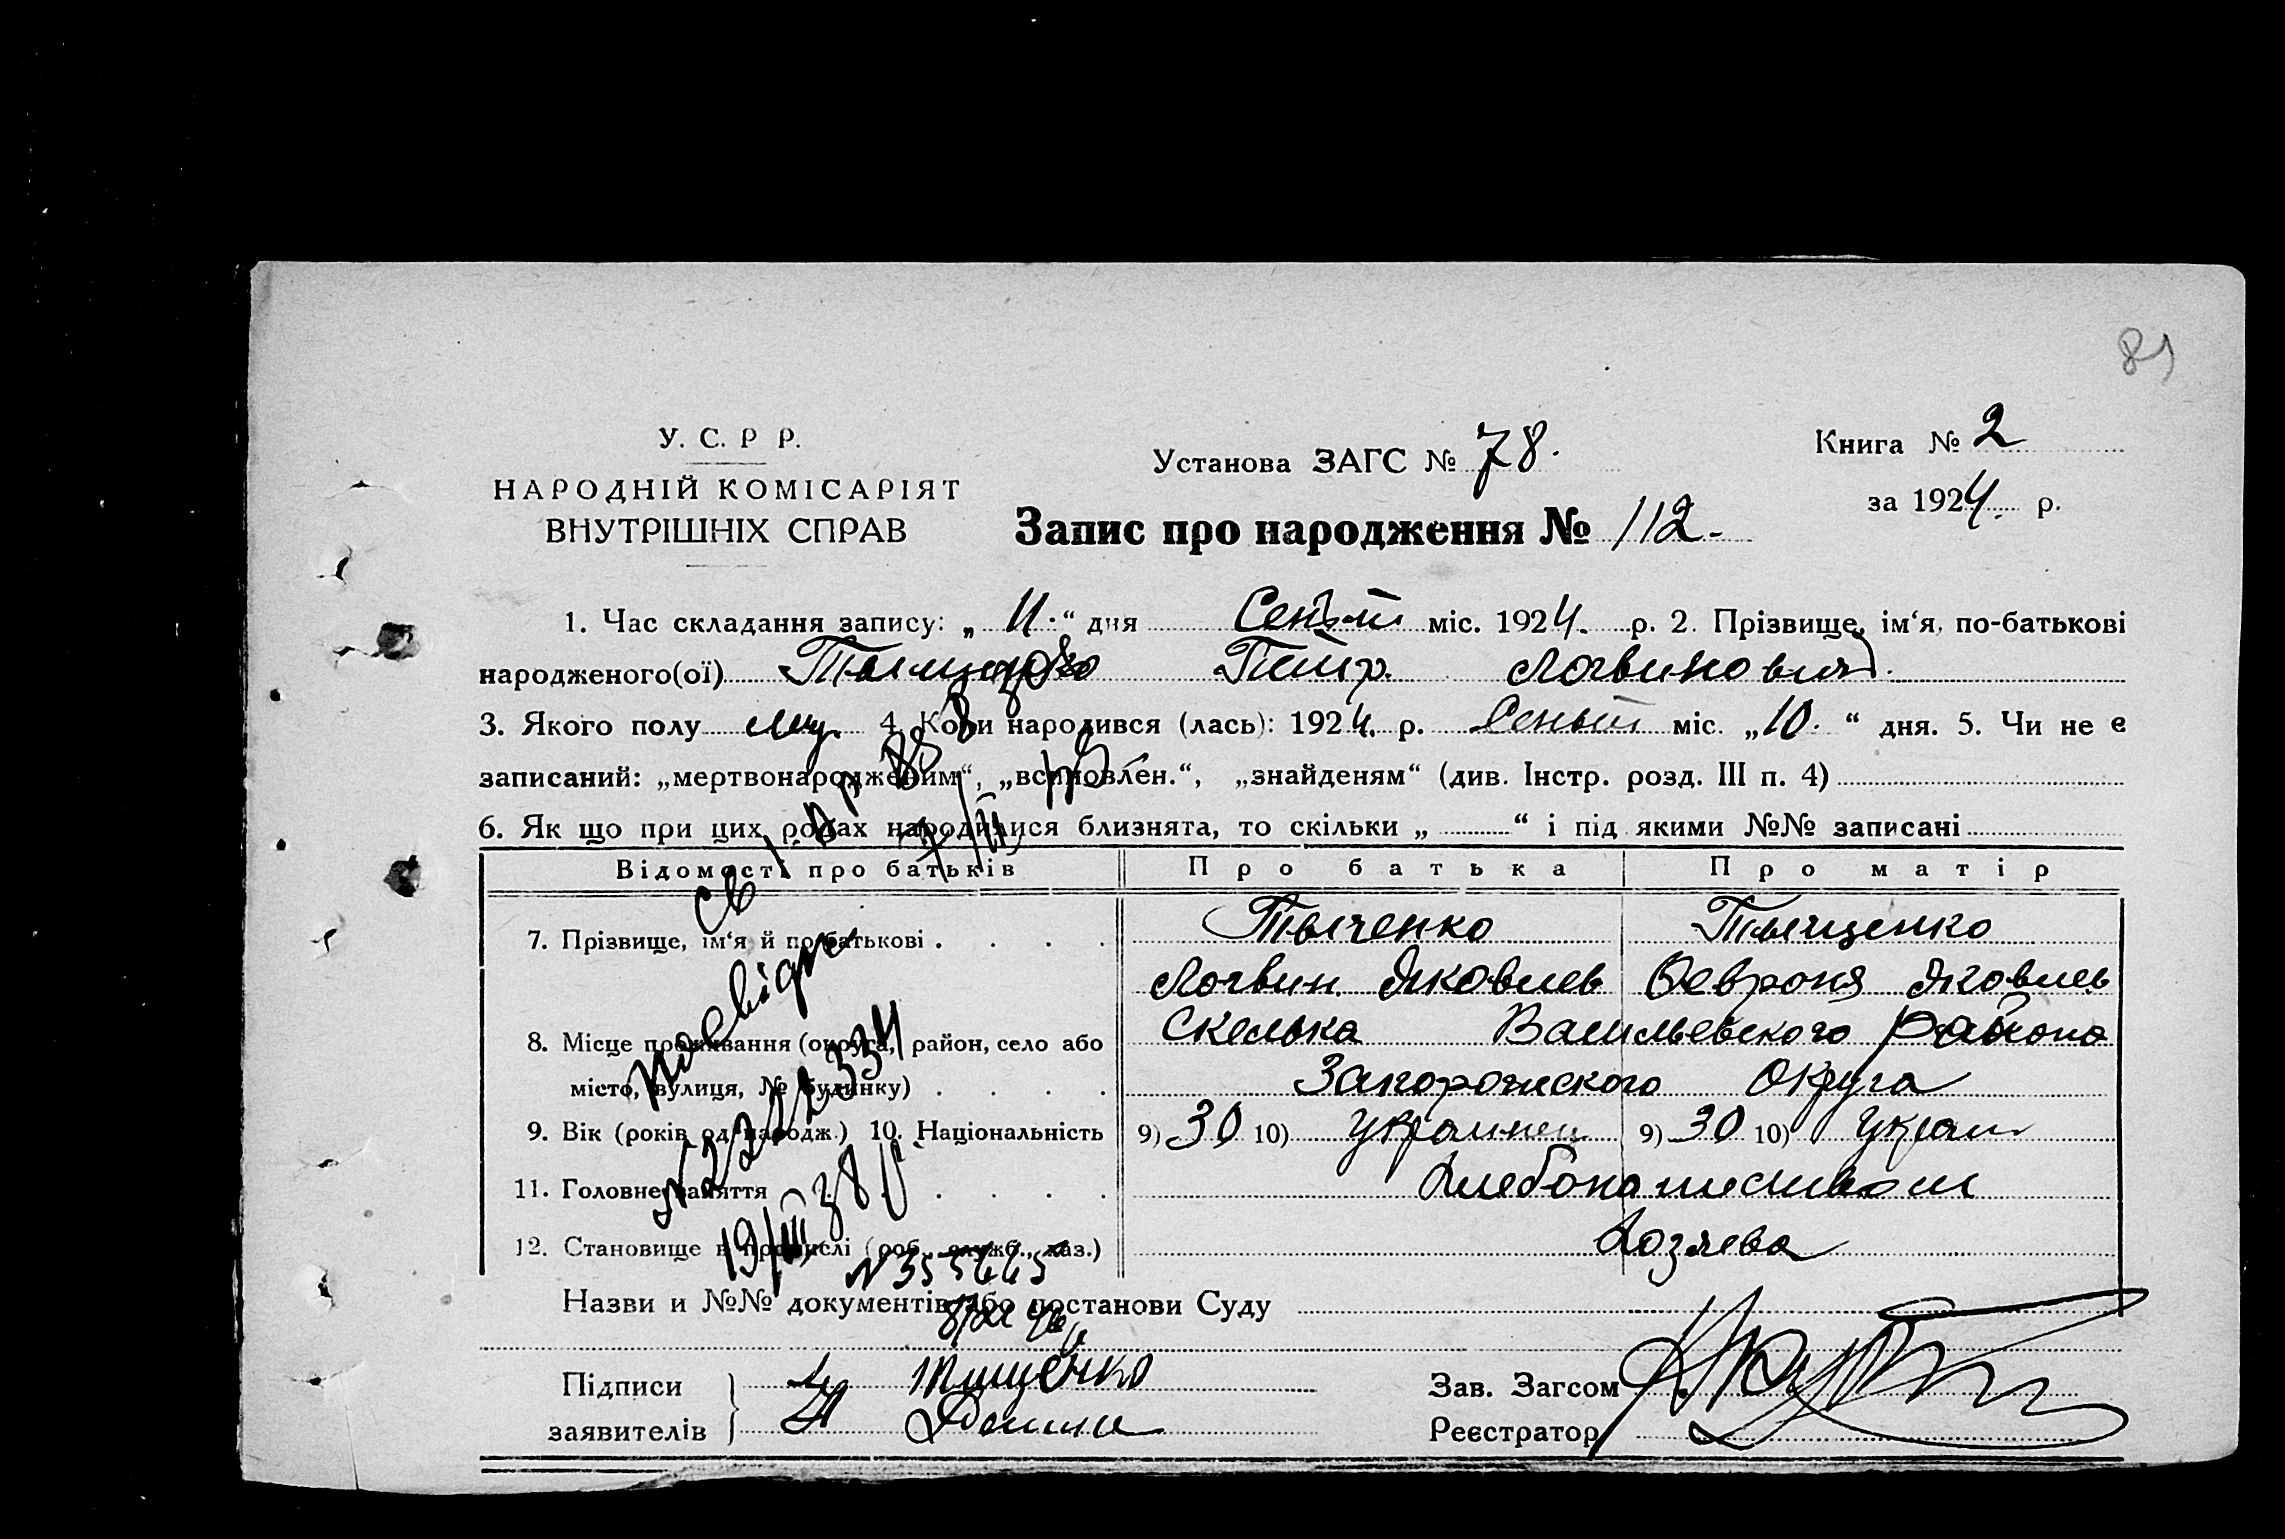 89
У. С. Р Р.
НАРОДНІЙ КОМІСАРІЯТ
ВНУТРІШНІХ СПРАВ
Установа ЗАГС № 78.
Книга № 2
за 1924. р.
Запис про народження № 112.
1. Час складання запису: „ 11. “ дня міс. 1924. р. 2. Прізвище, ім‘я, по-батькові
народженого(ої) Петр. Логвинович.
3. Якого полу муж. 4. Коли народився (лась): 1924. р. міс. „ 10. “ дня. 5. Чи не є
записаний: „мертвонародженим“, „всиновлен.“, „знайденям“ (див. Інстр. розд. III п. 4)
6. Як що при цих родах народилися близнята, то скільки „ “ і під якими №№ записані
Відомості про батьків Про батька Про матір
7. Прізвище, ім‘я й по-батькові . . . . Тыщенко
Логвин Яковлев Февроня Яковлев
8. Місце проживання (округа, район, село або Скелька Васильевского района
місто, вулиця, № будинку) . . . . Запорожского Округа
9. Вік (років од народж.) 10. Національність 9) 30 10) украинец 9) 30 10) украин
11. Головне заняття . . . . Хлебопашеством
12. Становище в промислі (роб., служб., хаз.) Хозяева
Назви и №№ документів або постанови Суду
№ 222334
19/III 38 р.
№ 355445
Підписи
заявителів
Тищенко
Зав. Загсом
Реєстратор